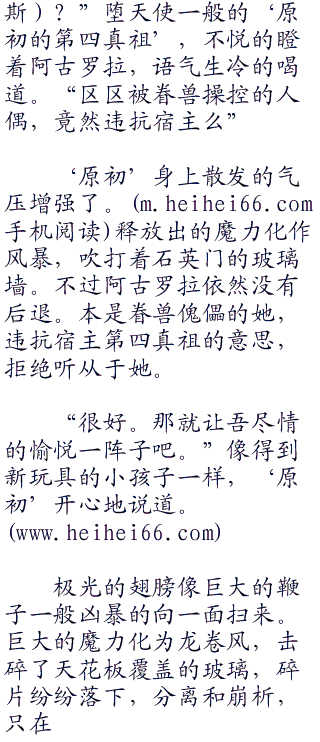 斯）？”堕天使一般的‘原
初的第四真祖’，不悦的瞪
着阿古罗拉，语气生冷的喝
道。“区区被眷兽操控的人
偶，竟然违抗宿主么”
‘原初’身上散发的气
压增强了。(m.heihei66.com
手机阅读)释放出的魔力化作
风暴，吹打着石英门的玻璃
墙。不过阿古罗拉依然没有
后退。本是眷兽傀儡的她，
违抗宿主第四真祖的意思，
拒绝听从于她。
“很好。那就让吾尽情
的愉悦一阵子吧。”像得到
新玩具的小孩子一样，‘原
初’开心地说道。
(www.heihei66.com)
极光的翅膀像巨大的鞭
子一般凶暴的向一面扫来。
巨大的魔力化为龙卷风，击
碎了天花板覆盖的玻璃，碎
片纷纷落下，分离和崩析，
只在